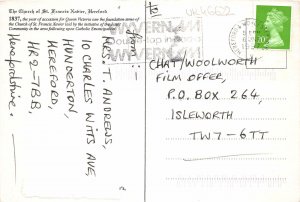 The Church of St. Francis Xavier, Hereford
1837, the year of accession for Queen Victoria saw the foundation stone of
the Church of St. Francis Xavier laid by the initiative of the Jesuit
Community in the area following upon Catholic Emancipation.
From:-
MRS. T. ANDREWS,
10 CHARLES WITTS AVE,
HUNDERTON,
HEREFORD,
HR2-7BB,
Herefordshire.
WYVERN AM
WYVERN AM
HEREFORD
CHAT/WOOLWORTH
FILM OFFER,
P.O. BOX 264,
ISLEWORTH
TW7-6TT